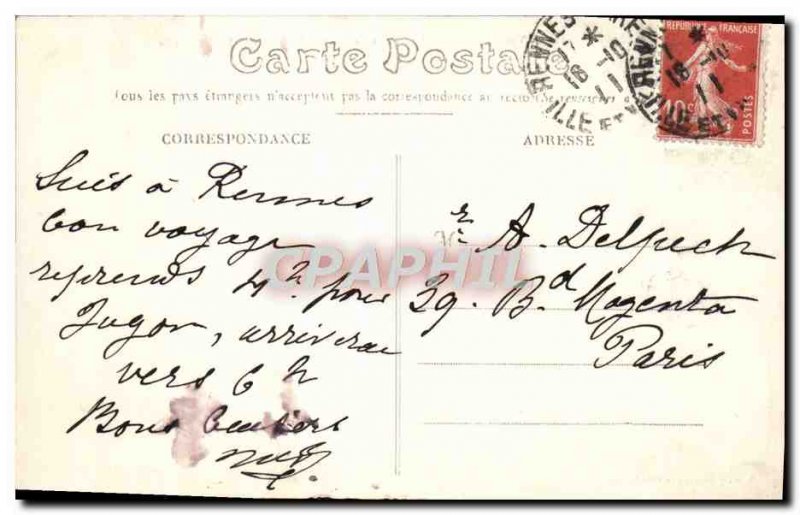 Carte Postale
Tous les pays étrangers n'acceptent pas la correspondance au recto
CORRESPONDANCE
ADRESSE
RENNES
16-10
11
ILLE ET
REPUBLIQUE FRANÇAISE
10c
POSTES
Suis à Rennes
bon voyage
reprends 4h pour
Jugon, arriverai
vers 6h
Bons baisers
Mr A. Delpech
39. Bd Magenta
Paris
CPAPHIL